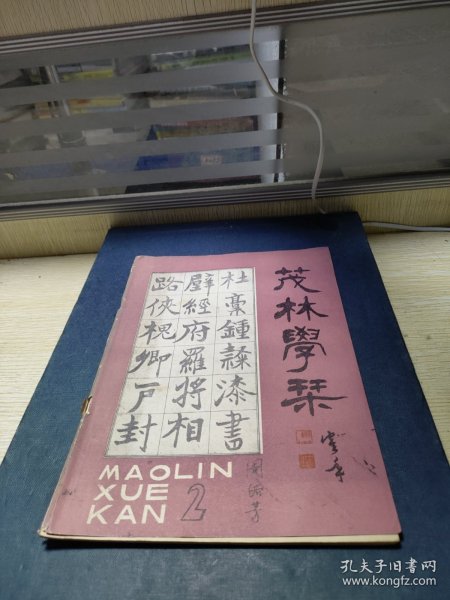 茂林學栞
杜稾鍾隸漆書
壁經府羅將相
路俠槐卿戸封
MAOLIN
XUE
KAN 2
孔夫子旧书网
www.kongfz.com